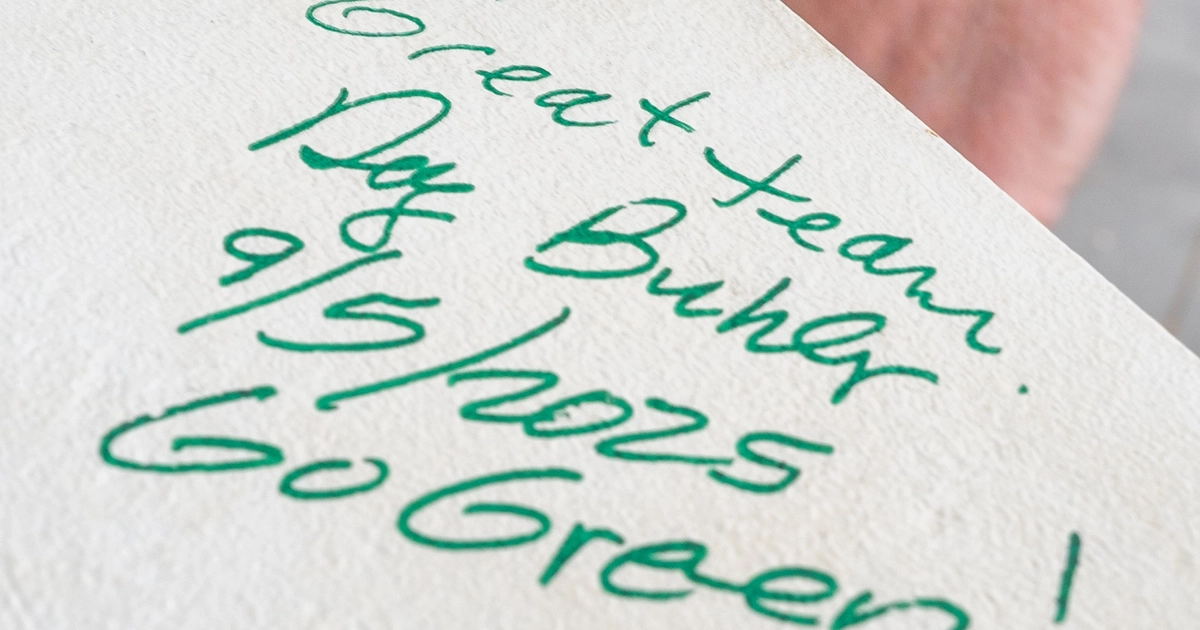 Great team.
Doug Buhler
9/5/2025
Go Green!